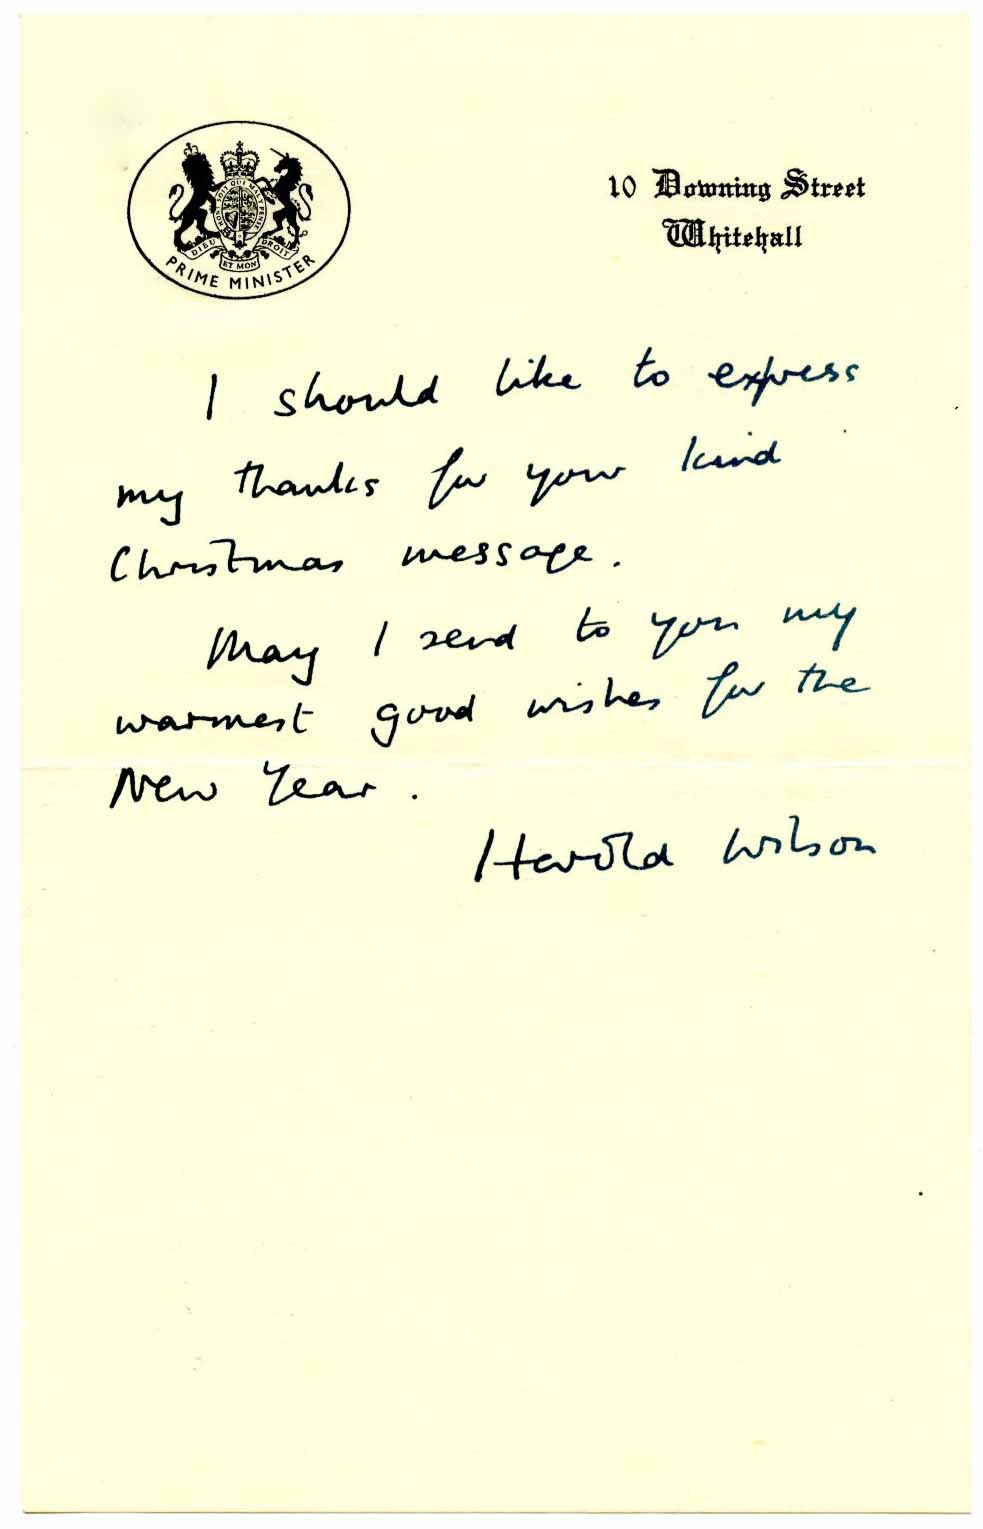 10 Downing Street
Whitehall
HONI SOIT QUI MAL Y PENSE
DIEU ET MON DROIT
PRIME MINISTER
I should like to express
my thanks for your kind
Christmas message.
May I send to you my
warmest good wishes for the
New Year.
Harold Wilson